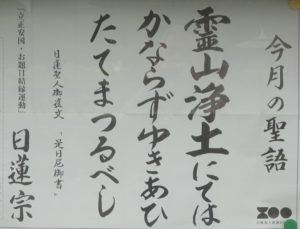 今月の聖語
霊山浄土にては
かならずゆきあひ
たてまつるべし
日蓮聖人御遺文 「是日尼御書」
「立正安国・お題目結縁運動」
日蓮宗